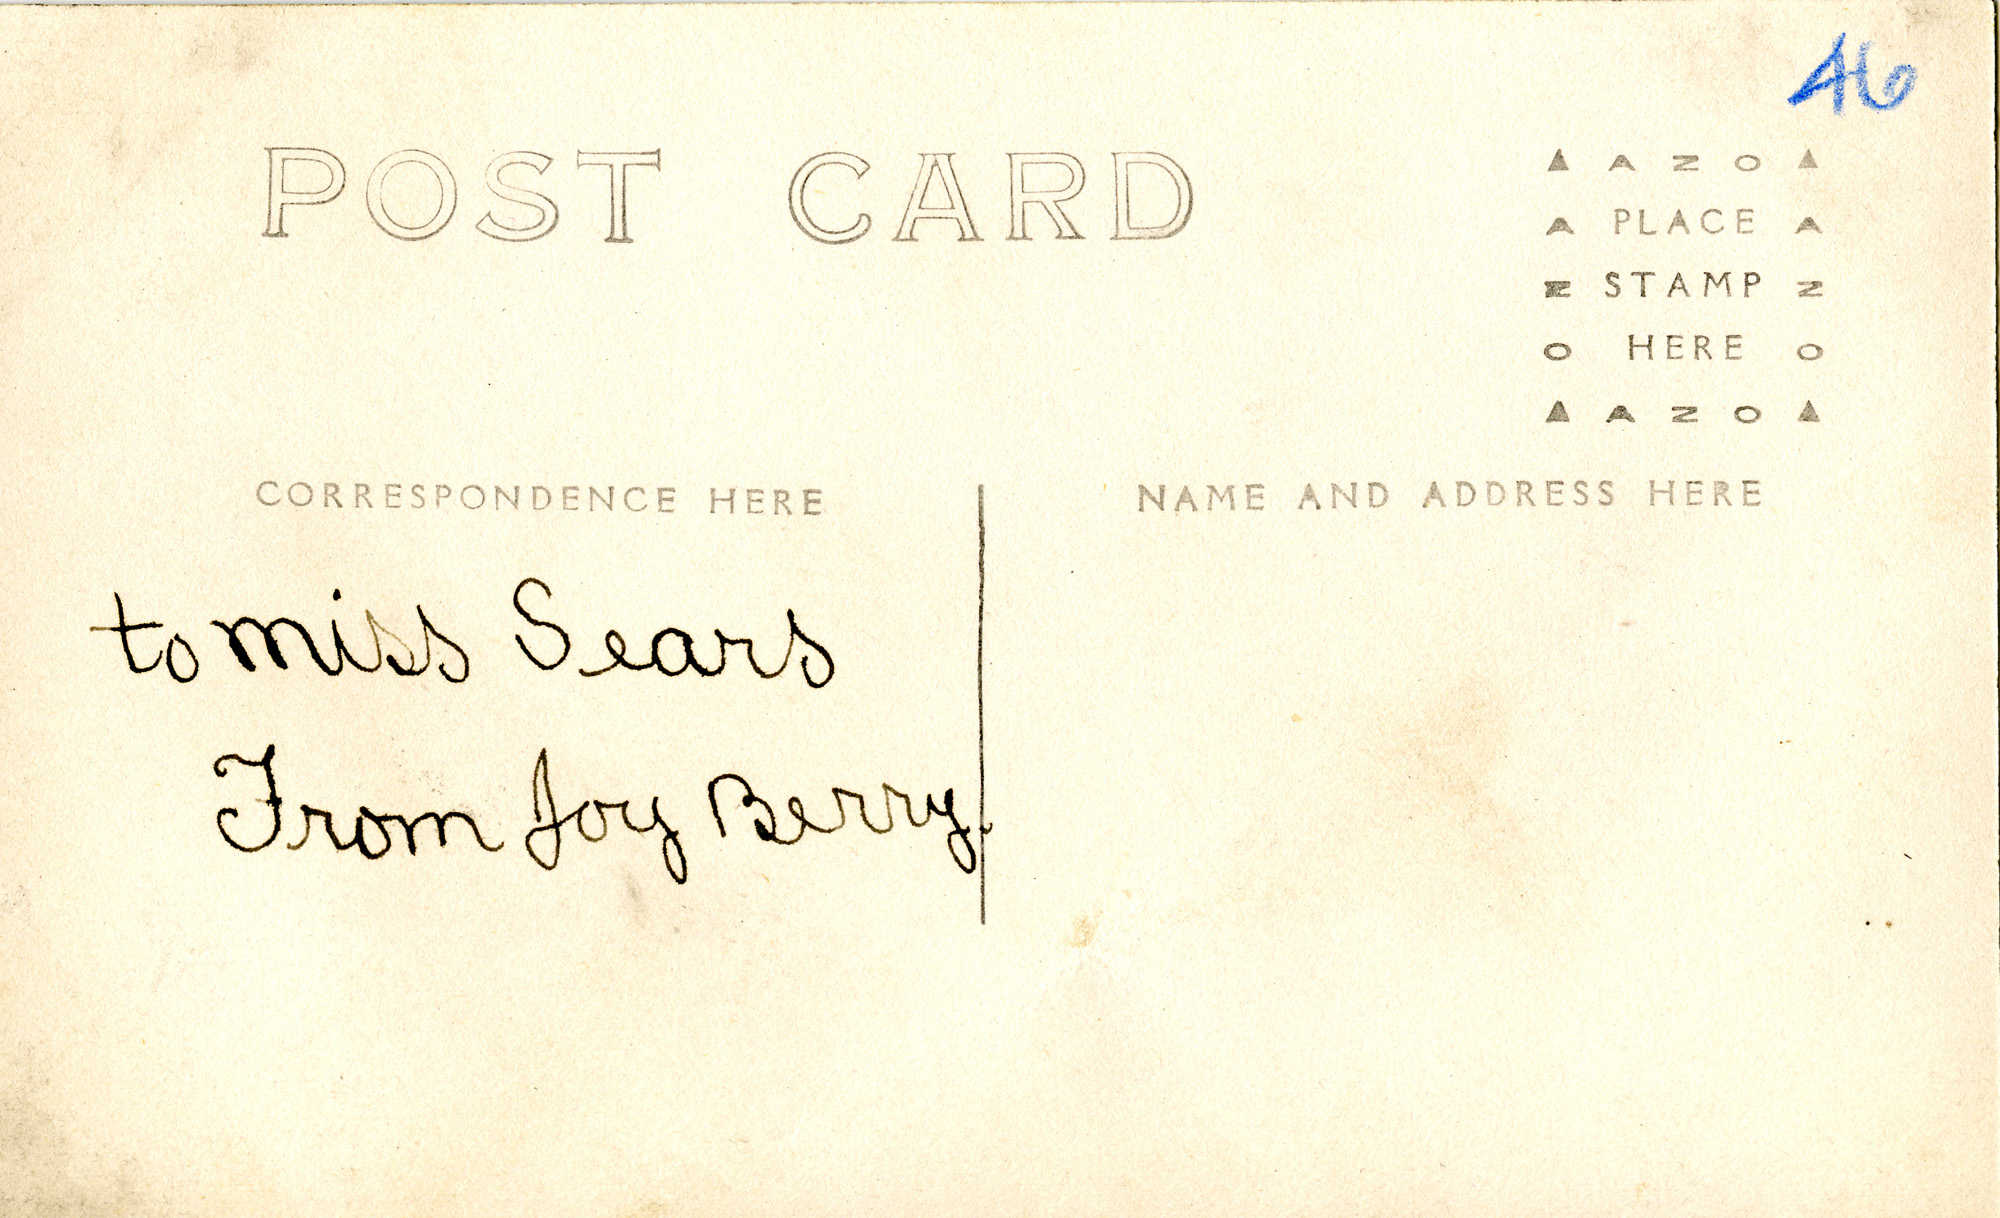 46
POST CARD
▲ A Z O ▲
A PLACE A
Z STAMP Z
O HERE O
▲ A Z O ▲
CORRESPONDENCE HERE
NAME AND ADDRESS HERE
to miss Sears
From Joy Berry.